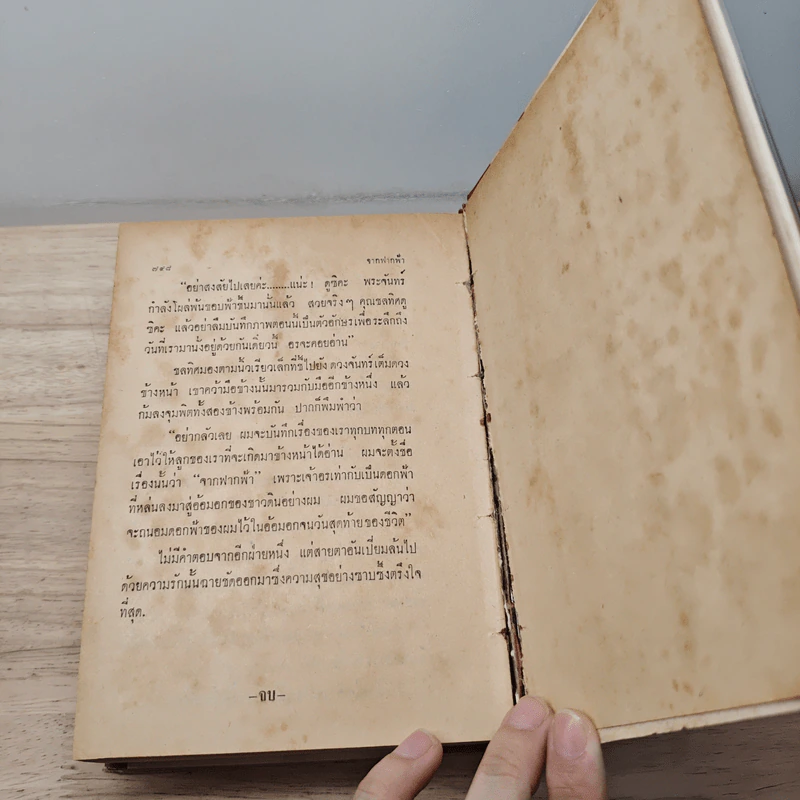 ๗๙๘ จากฟากฟ้า
“อย่าสงสัยไปเลยค่ะ........แน่ะ! ดูซิคะ พระจันทร์
กำลังโผล่พ้นขอบฟ้าขึ้นมานั่นแล้ว สวยจริงๆ คุณชลทิศดู
ซิคะ แล้วอย่าลืมบันทึกภาพตอนนี้เป็นตัวอักษรเพื่อระลึกถึง
วันที่เรามานั่งอยู่ด้วยกันเดี๋ยวนี้ อรจะคอยอ่าน”
ชลทิศมองตามนิ้วเรียวเล็กที่ชี้ไปยัง ดวงจันทร์เต็มดวง
ข้างหน้า เขาคว้ามือข้างนั้นมารวมกับมืออีกข้างหนึ่ง แล้ว
ก้มลงจุมพิตทั้งสองข้างพร้อมกัน ปากก็พึมพำว่า
“อย่ากลัวเลย ผมจะบันทึกเรื่องของเราทุกบททุกตอน
เอาไว้ให้ลูกของเราที่จะเกิดมาข้างหน้าได้อ่าน ผมจะตั้งชื่อ
เรื่องนั้นว่า “จากฟากฟ้า” เพราะเจ้าอรเท่ากับเป็นดอกฟ้า
ที่หล่นลงมาสู่อ้อมอกของชาวดินอย่างผม ผมขอสัญญาว่า
จะถนอมดอกฟ้าของผมไว้ในอ้อมอกจนวันสุดท้ายของชีวิต”
ไม่มีคำตอบจากอีกฝ่ายหนึ่ง แต่สายตาอันเปี่ยมล้นไป
ด้วยความรักนั้นฉายชัดออกมาซึ่งความสุขอย่างซาบซึ้งตรึงใจ
ที่สุด.
–จบ–